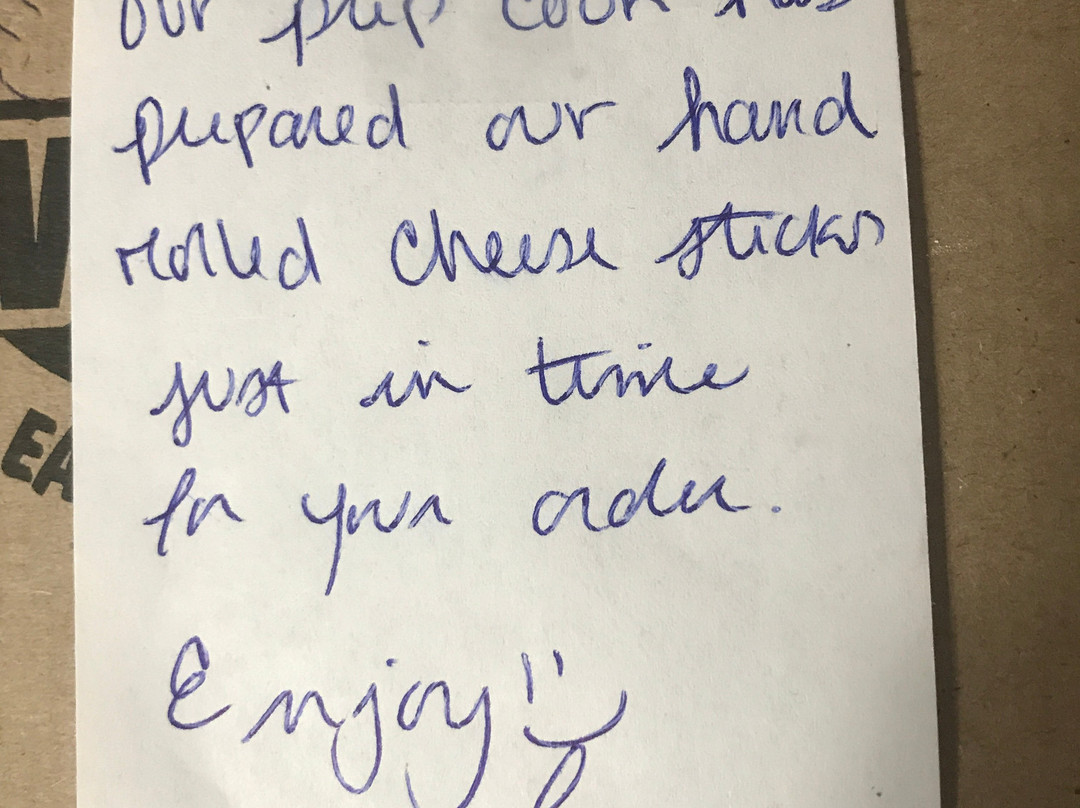 our prep cook has
prepared our hand
rolled cheese sticks
just in time
for your order.
Enjoy!
EA